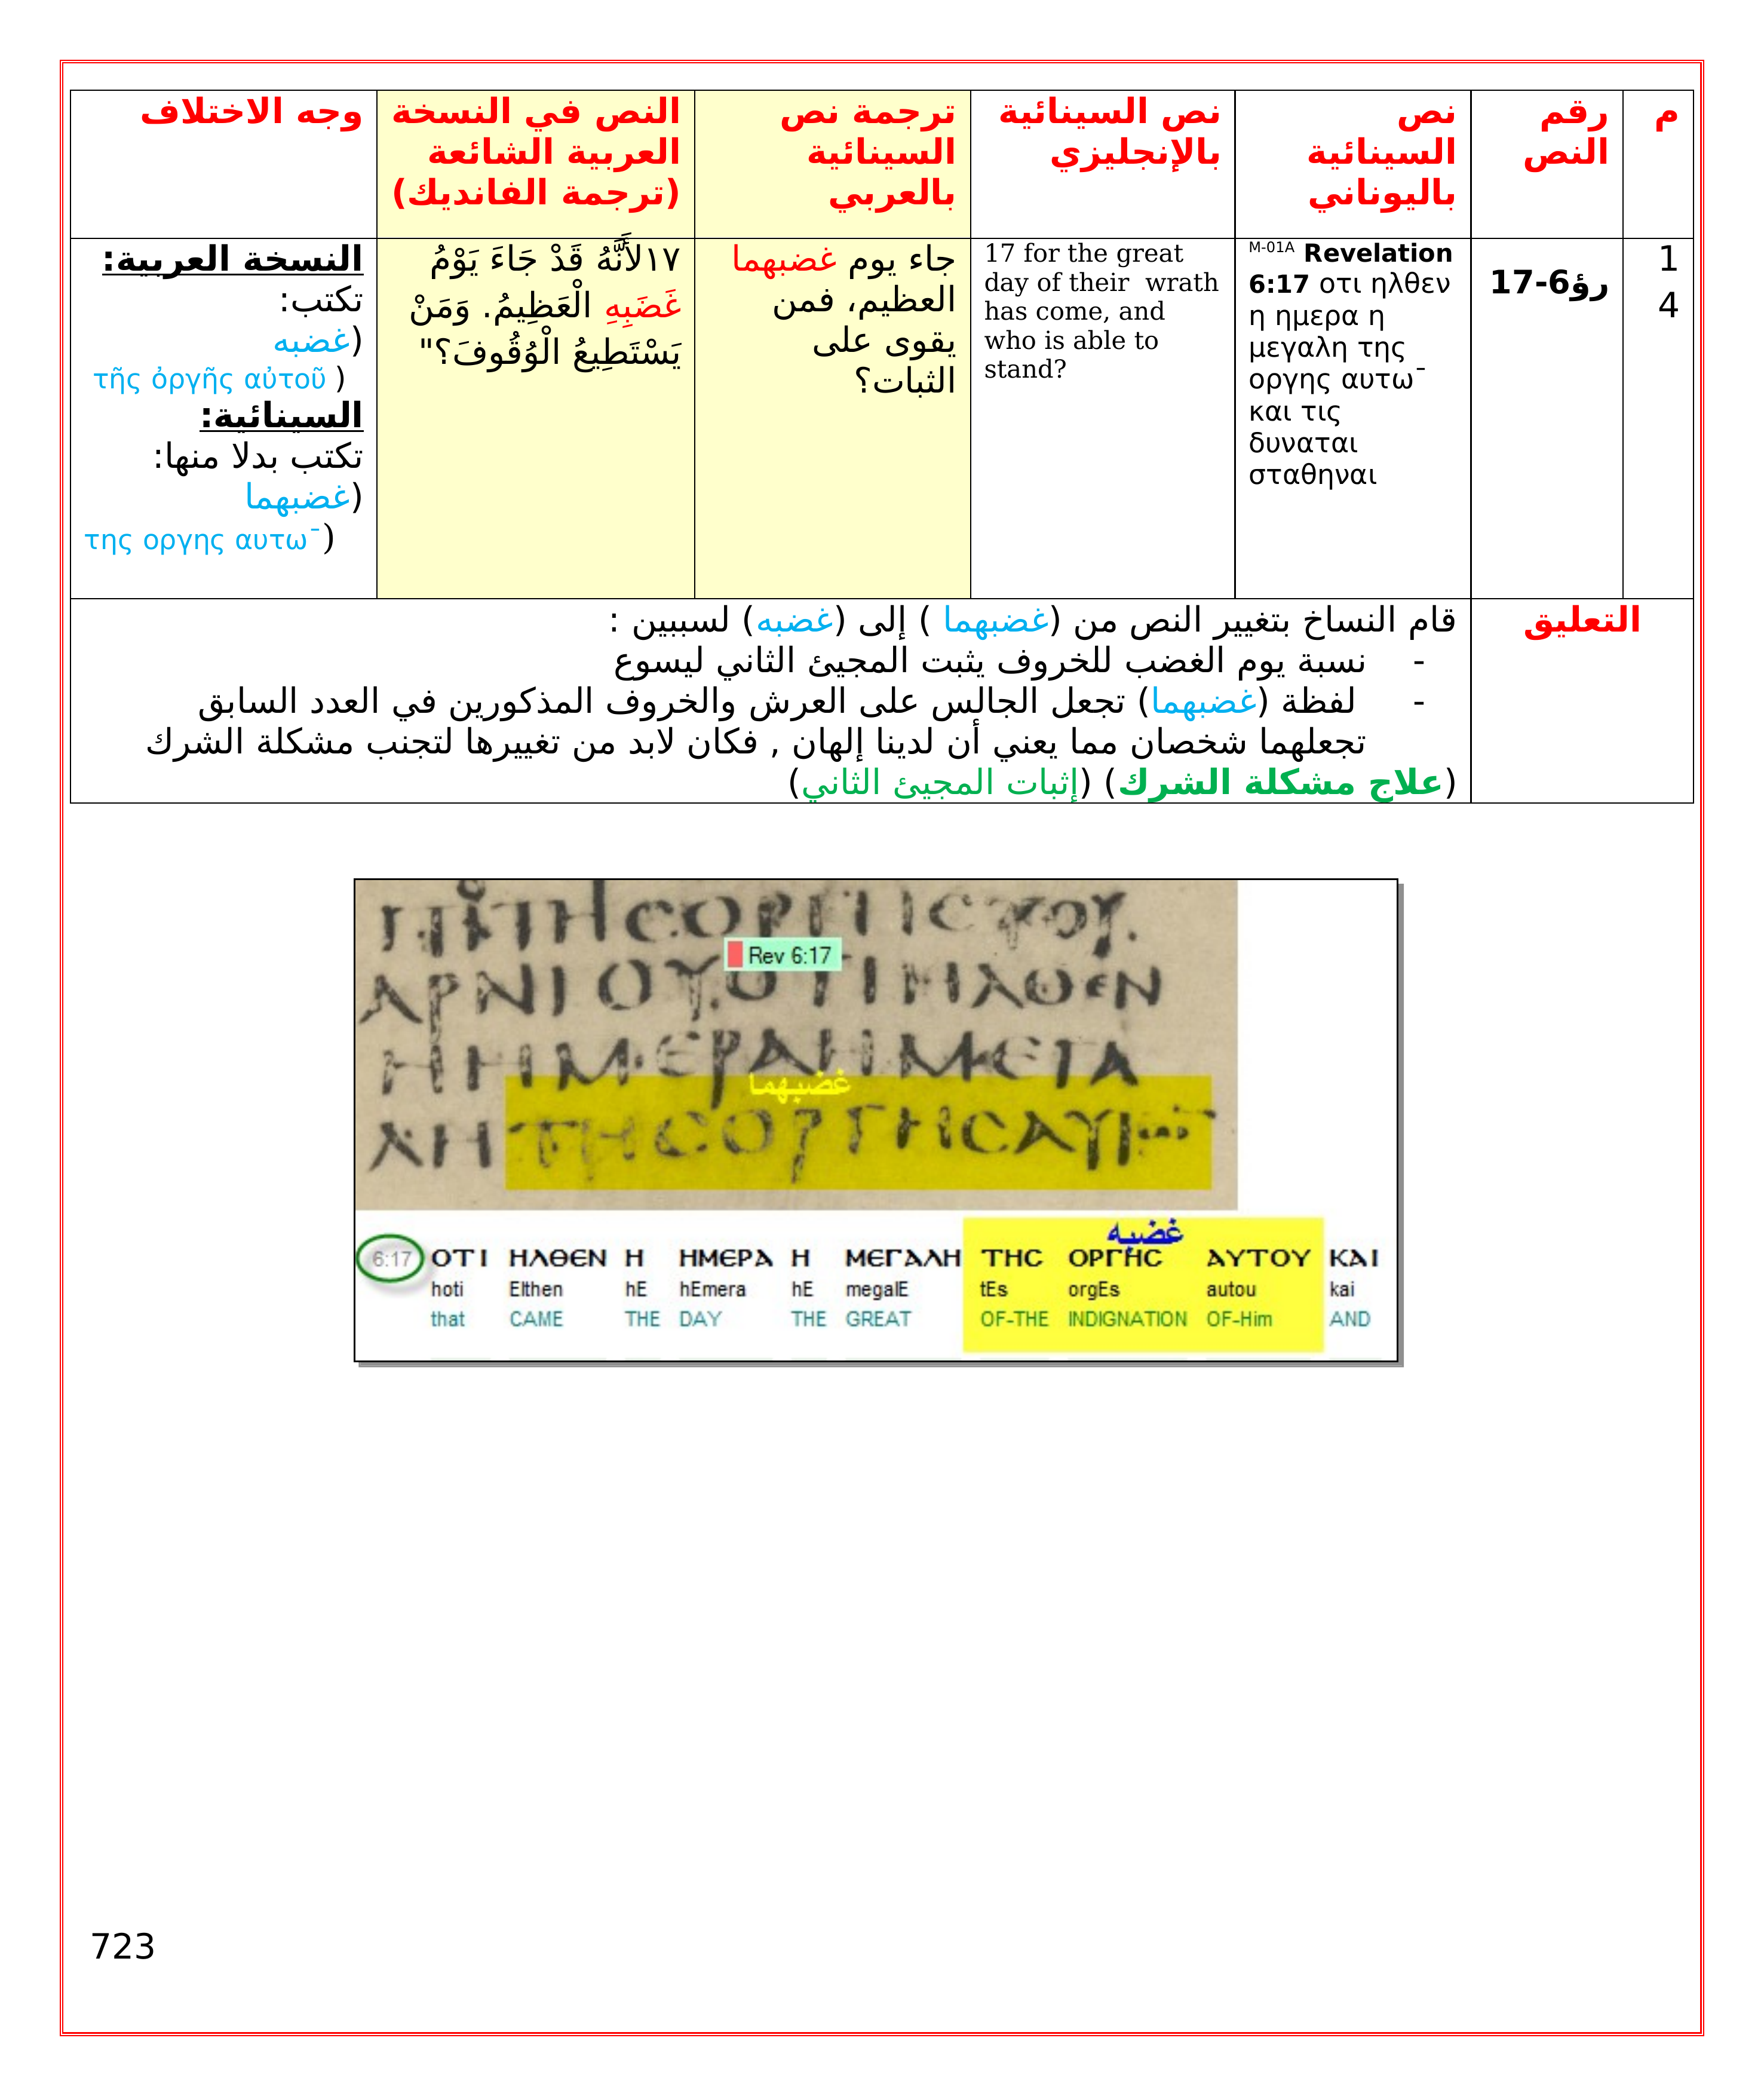 م
رقم
النص
نص
السينائية
باليوناني
نص السينائية
بالإنجليزي
ترجمة نص
السينائية
بالعربي
النص في النسخة
العربية الشائعة
(ترجمة الفانديك)
وجه الاختلاف
1
4
رؤ6-17
M-01A Revelation
6:17 οτι ηλθεν
η ημερα η
μεγαλη της
οργης αυτω¯
και τις
δυναται
σταθηναι
17 for the great
day of their wrath
has come, and
who is able to
stand?
جاء يوم غضبهما
العظيم، فمن
يقوى على
الثبات؟
١٧لأَنَّهُ قَدْ جَاءَ يَوْمُ
غَضَبِهِ الْعَظِيمُ. وَمَنْ
يَسْتَطِيعُ الْوُقُوفَ؟"
النسخة العربية:
تكتب:
(غضبه
τῆς ὀργῆς αὐτοῦ )
السينائية:
تكتب بدلا منها:
(غضبهما
της οργης αυτω¯)
التعليق
قام النساخ بتغيير النص من (غضبهما ) إلى (غضبه) لسببين :
- نسبة يوم الغضب للخروف يثبت المجيئ الثاني ليسوع
- لفظة (غضبهما) تجعل الجالس على العرش والخروف المذكورين في العدد السابق
تجعلهما شخصان مما يعني أن لدينا إلهان , فكان لابد من تغييرها لتجنب مشكلة الشرك
(علاج مشكلة الشرك) (إثبات المجيئ الثاني)
Rev 6:17
ΑΡΝΙΟΥ.ΟΤΙΗΛΘΕΝ
ΗΗΜΕΡΑΗΜΕΓΑ
غضبهما
ΛΗΤΗϹΟΡΓΗϹΑΥ
غضبه
6:17 ΟΤΙ ΗΛΘΕΝ Η ΗΜΕΡΑ Η ΜΕΓΑΛΗ ΤΗϹ ΟΡΓΗϹ ΑΥΤΟΥ ΚΑΙ
hoti Elthen hE hEmera hE megalE tEs orgEs autou kai
that CAME THE DAY THE GREAT OF-THE INDIGNATION OF-Him AND
723